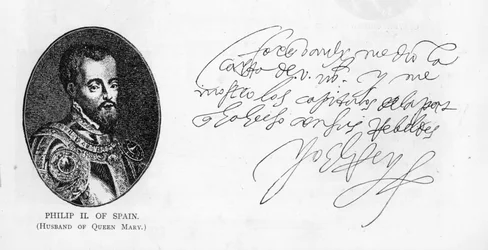 me dio la
carta de v. m. y me
mostro los capitulos de la paz
hecho con sus Rebeldes
Yo el Rey
PHILIP II. OF SPAIN.
(HUSBAND OF QUEEN MARY.)